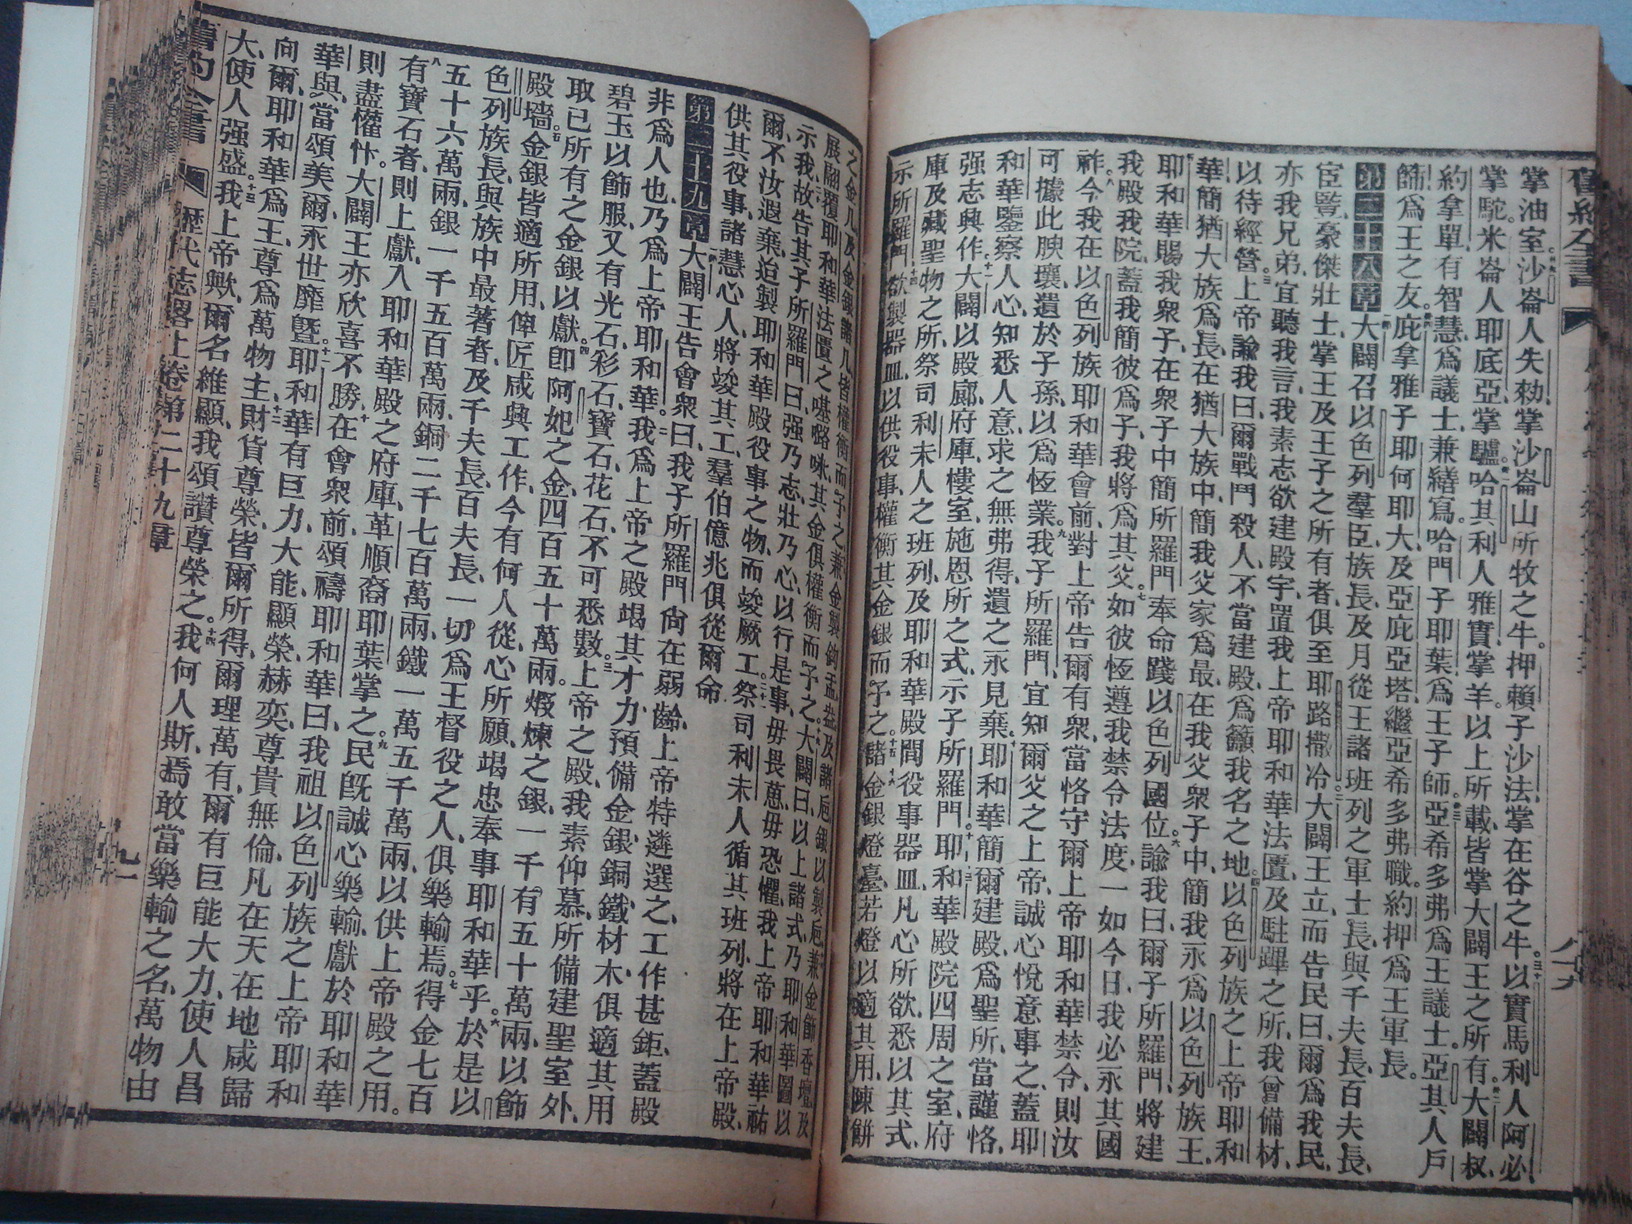 掌油室沙崙人失勑掌沙崙山所牧之牛押賴子沙法掌在谷之牛以實馬利人阿必
掌駝米崙人耶底亞掌驢哈其利人雅實掌羊以上所載皆掌大闢王之所有大闢叔
約拿單有智慧爲議士兼繕寫哈門子耶葉爲王子師亞希多弗爲王議士亞其人戶
篩爲王之友庇拿雅子耶何耶大及亞庇亞塔繼亞希多弗職約押爲王軍長
第二十八章大闢召以色列羣臣族長及月從王諸班列之軍士長與千夫長百夫長
宦豎豪傑壯士掌王及王子之所有者俱至耶路撒冷大闢王立而告民曰爾爲我民
亦我兄弟宜聽我言我素志欲建殿宇置我上帝耶和華法匱及駐蹕之所我曾備材
以待經營上帝諭我曰爾戰鬥殺人不當建殿爲籲我名之地以色列族之上帝耶和
華簡猶大族爲長在猶大族中簡我父家爲最在我父衆子中簡我永爲以色列族王
耶和華賜我衆子在衆子中簡所羅門奉命踐以色列國位諭我曰爾子所羅門將建
我殿我院蓋我簡彼爲子我將爲其父如彼恆遵我禁令法度一如今日我必永其國
祚今我在以色列族耶和華會前對上帝告爾有衆當恪守爾上帝耶和華禁令則汝
可據此腴壤遺於子孫以爲恆業我子所羅門宜知爾父之上帝誠心悅意事之蓋耶
和華鑒察人心知悉人意求之無弗得遺之永見棄耶和華簡爾建殿爲聖所當謹恪
强志興作大闢以殿廊府庫樓室施恩所之式示子所羅門耶和華殿院四周之室府
庫及藏聖物之所祭司利未人之班列及耶和華殿間役事器皿凡心所欲悉以其式
示所羅門欲製器皿以供役事權衡其金銀而予之諸金銀燈臺若燈以適其用陳餅
之金几及金銀諸几皆權衡而予之兼金製鉤盂盎及諸巵銀以製巵兼金飾香壇及
展翮覆耶和華法匱之𠼻𡀔咏其金俱權衡而予之大闢曰以上諸式乃耶和華圖以
示我故告其子所羅門曰强乃志壯乃心以行是事毋畏葸毋恐懼我上帝耶和華祐
爾不汝遐棄迨製耶和華殿役事之物而竣厥工祭司利未人循其班列將在上帝殿
供其役事諸慧心人將竣其工羣伯億兆俱從爾命
第二十九章大闢王告會衆曰我子所羅門尙在弱齡上帝特遴選之工作甚鉅蓋殿
非爲人也乃爲上帝耶和華我爲上帝之殿竭其才力預備金銀銅鐵材木俱適其用
碧玉以飾服又有光石彩石寶石花石不可悉數上帝之殿我素仰慕所備建聖室外
取已所有之金銀以獻卽阿妃之金四百五十萬兩煆煉之銀一千有五十萬兩以飾
殿墻金銀皆適所用俾匠咸興工作今有何人從心所願竭忠奉事耶和華乎於是以
色列族長與族中最著者及千夫長百夫長一切爲王督役之人俱樂輸焉得金七百
五十六萬兩銀一千五百萬兩銅二千七百萬兩鐵一萬五千萬兩以供上帝殿之用
有寶石者則上獻入耶和華殿之府庫革順裔耶葉掌之民旣誠心樂輸獻於耶和華
則盡懽忭大闢王亦欣喜不勝在會衆前頌禱耶和華曰我祖以色列族之上帝耶和
華與當頌美爾永世靡曁耶和華有巨力大能顯榮赫奕尊貴無倫凡在天在地咸歸
向爾耶和華爲王尊爲萬物主財貨尊榮皆爾所得爾理萬有爾有巨能大力使人昌
大使人强盛我上帝歟爾名維顯我頌讚尊榮之我何人斯焉敢當樂輸之名萬物由
舊約全書 歷代志畧上卷第二十九章